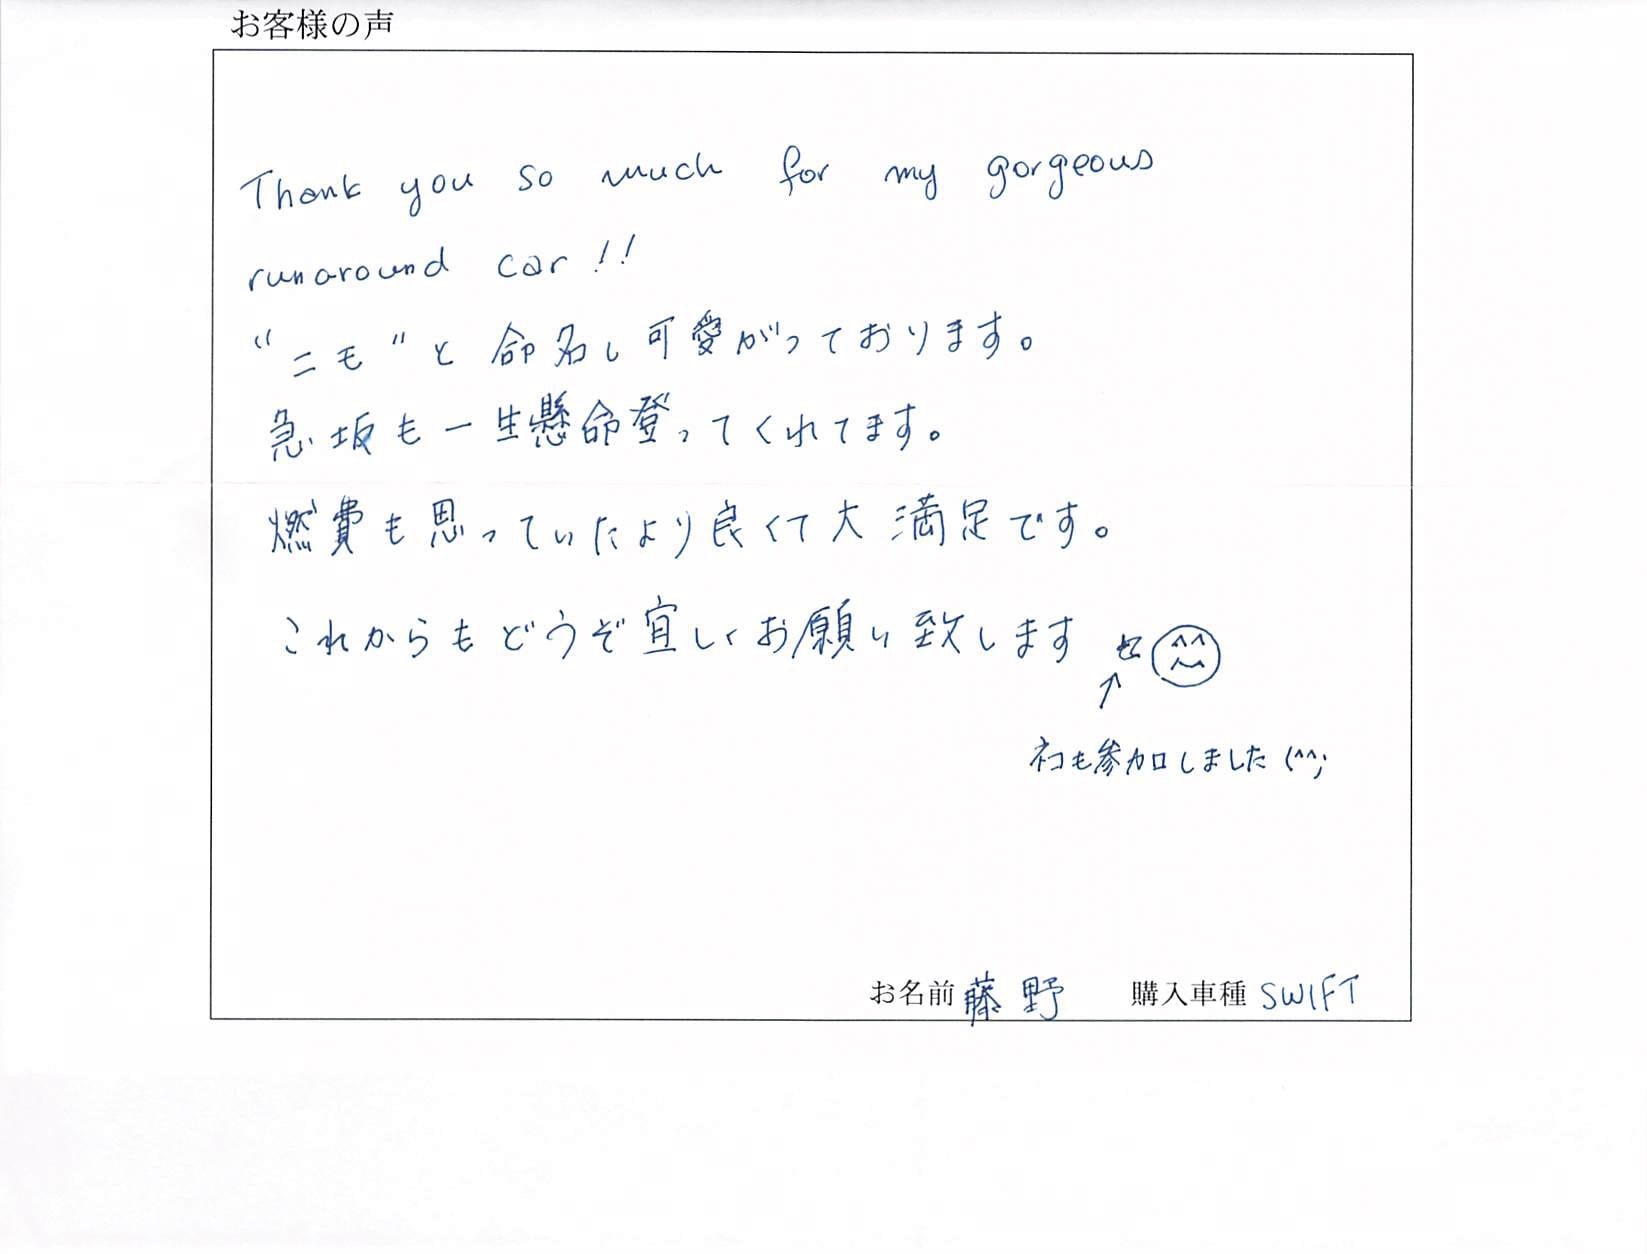 お客様の声
Thank you so much for my gorgeous
runaround car!!
“ニモ”と命名し可愛がっております。
急坂も一生懸命登ってくれてます。
燃費も思っていたより良くて大満足です。
これからもどうぞ宜しくお願い致します
ネコも参加しました (^^;
お名前 藤野 購入車種 SWIFT